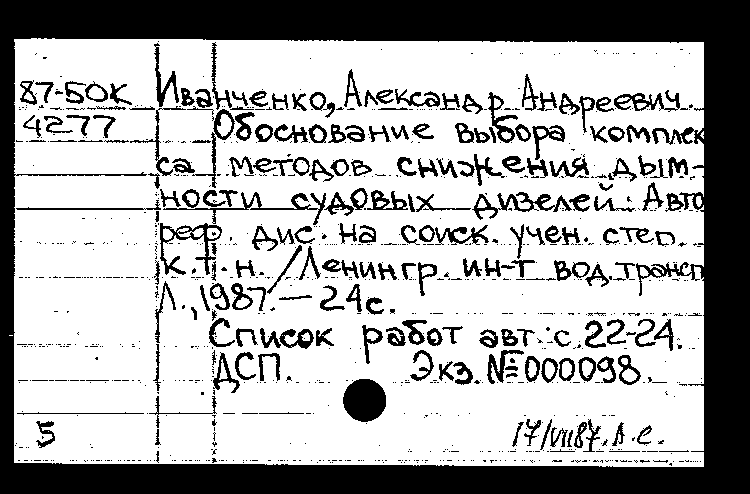 87-5ОК Иванченко, Александр Андреевич.
4277 Обоснование выбора комплек
са методов снижения дым-
ности судовых дизелей: Авто
реф. дис. на соиск. учен. степ.
к.т.н. / Ленингр. ин-т вод. трансп
Л., 1987. — 24 с.
Список работ авт.: с. 22-24.
ДСП. Экз. № 000098.
5 17/VII87. А.С.